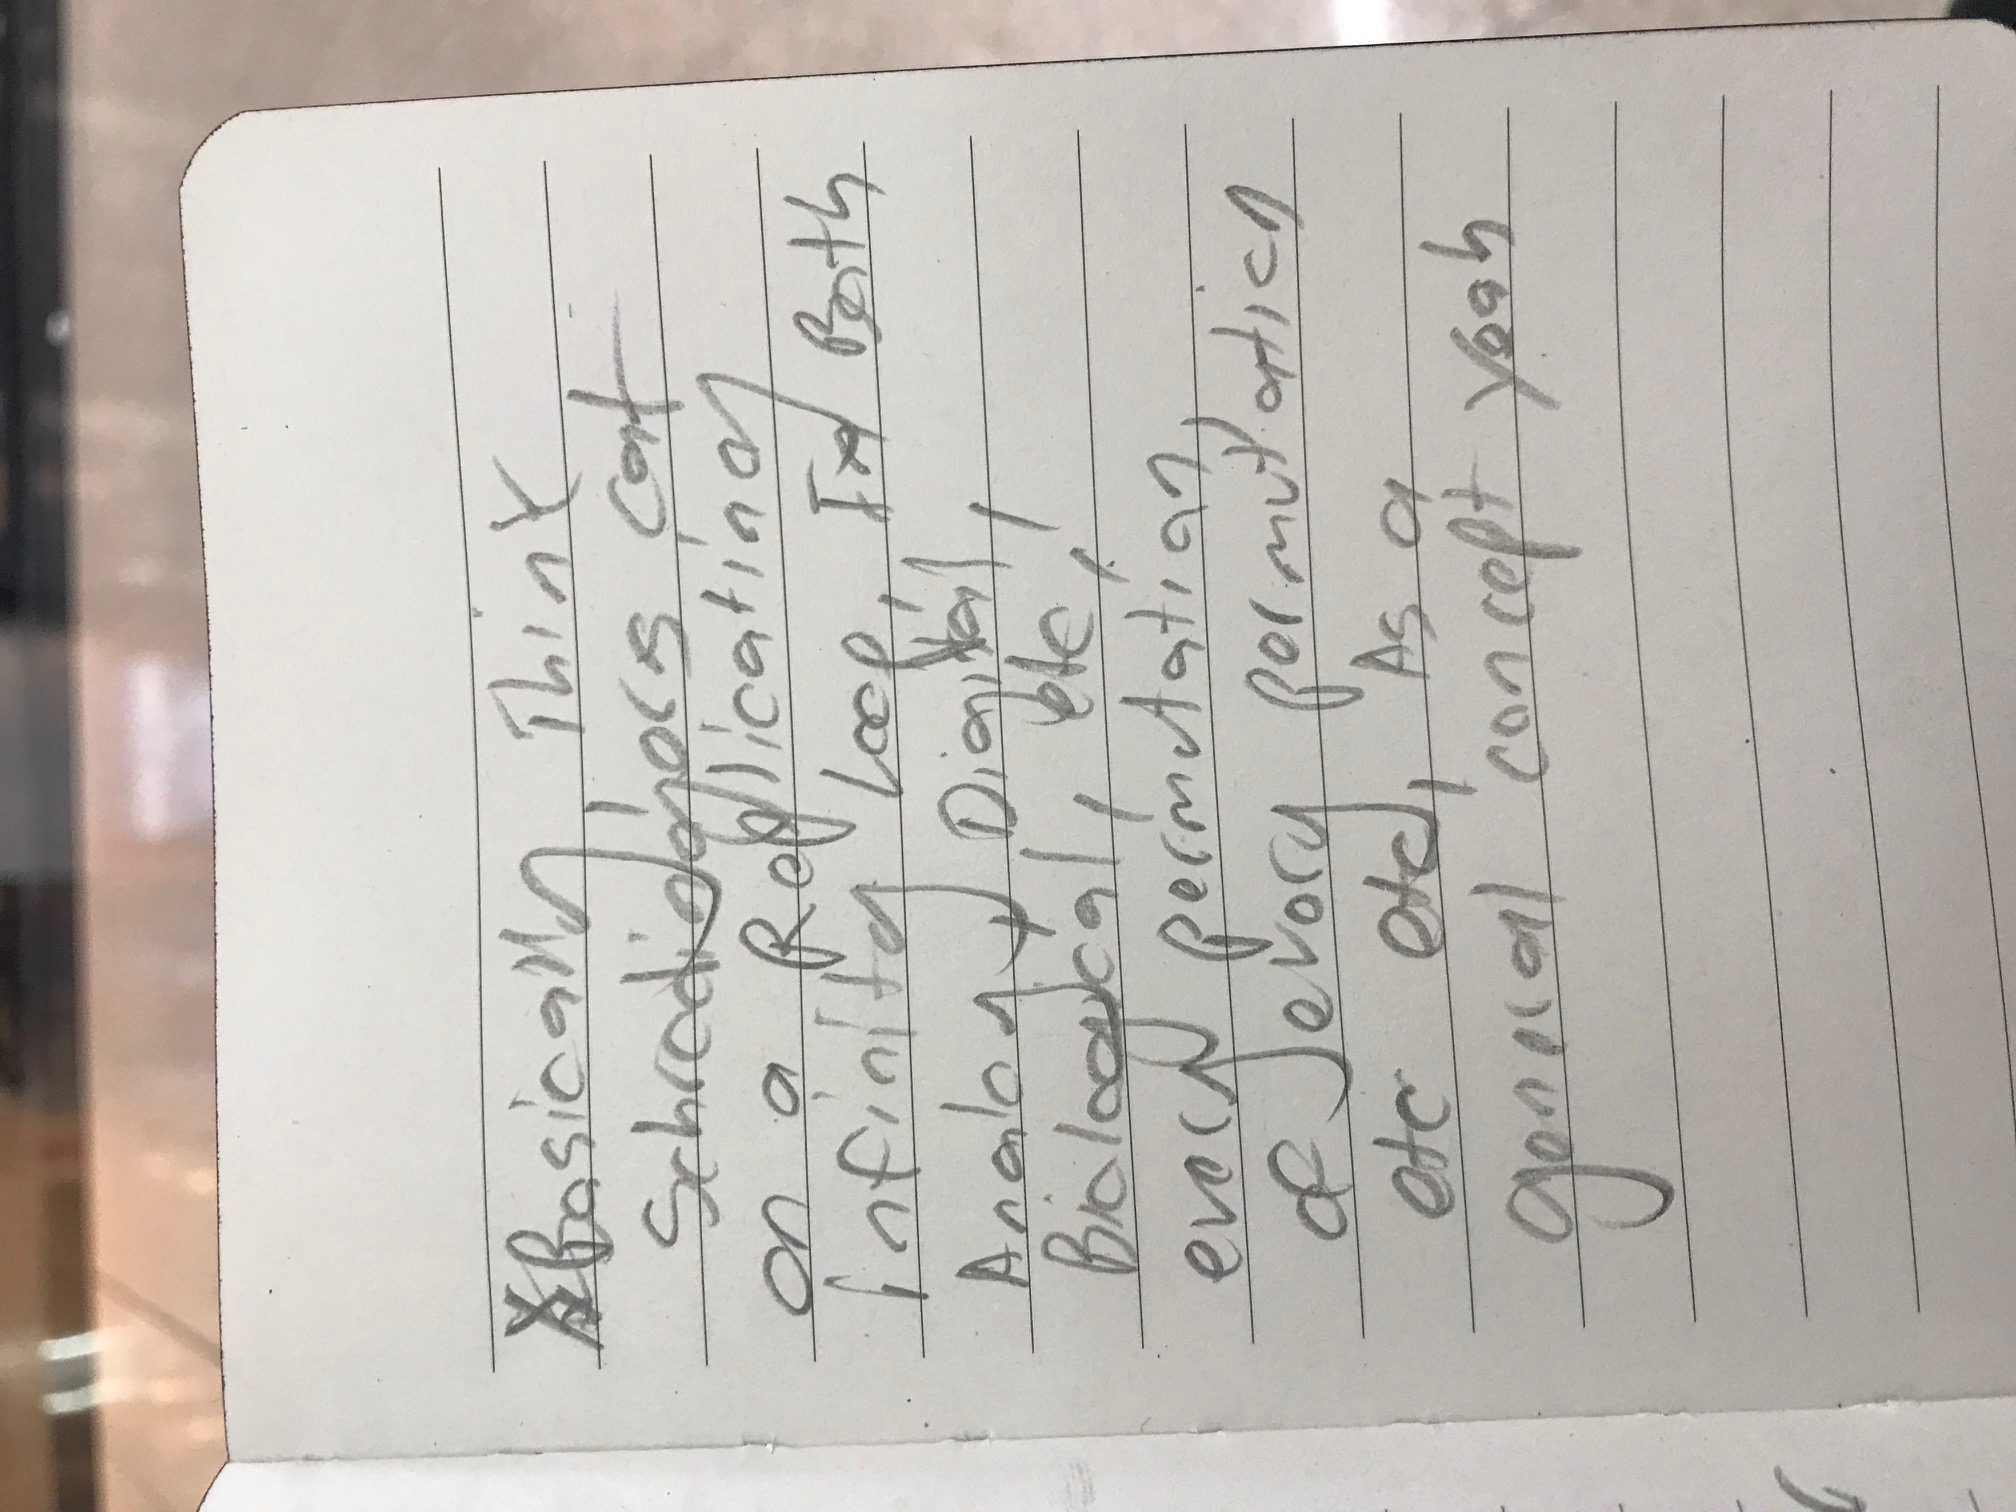 Basically Think
Schrodingers cat
on a Replicating
infinity Loop, In Both
Analog + Digital,
Biological, etc,
every permutation
of every permutation
etc etc, As a
general concept yeah